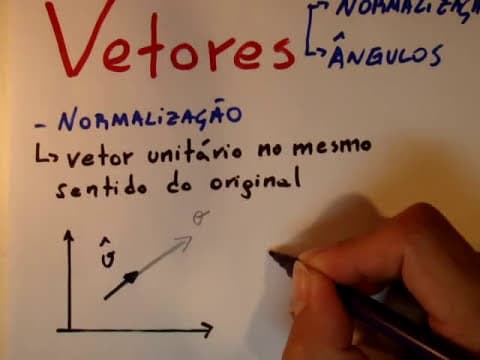 Vetores
NORMALIZAÇÃ
ÂNGULOS
- NORMALIZAÇÃO
↳ vetor unitário no mesmo
sentido do original
v̂
v